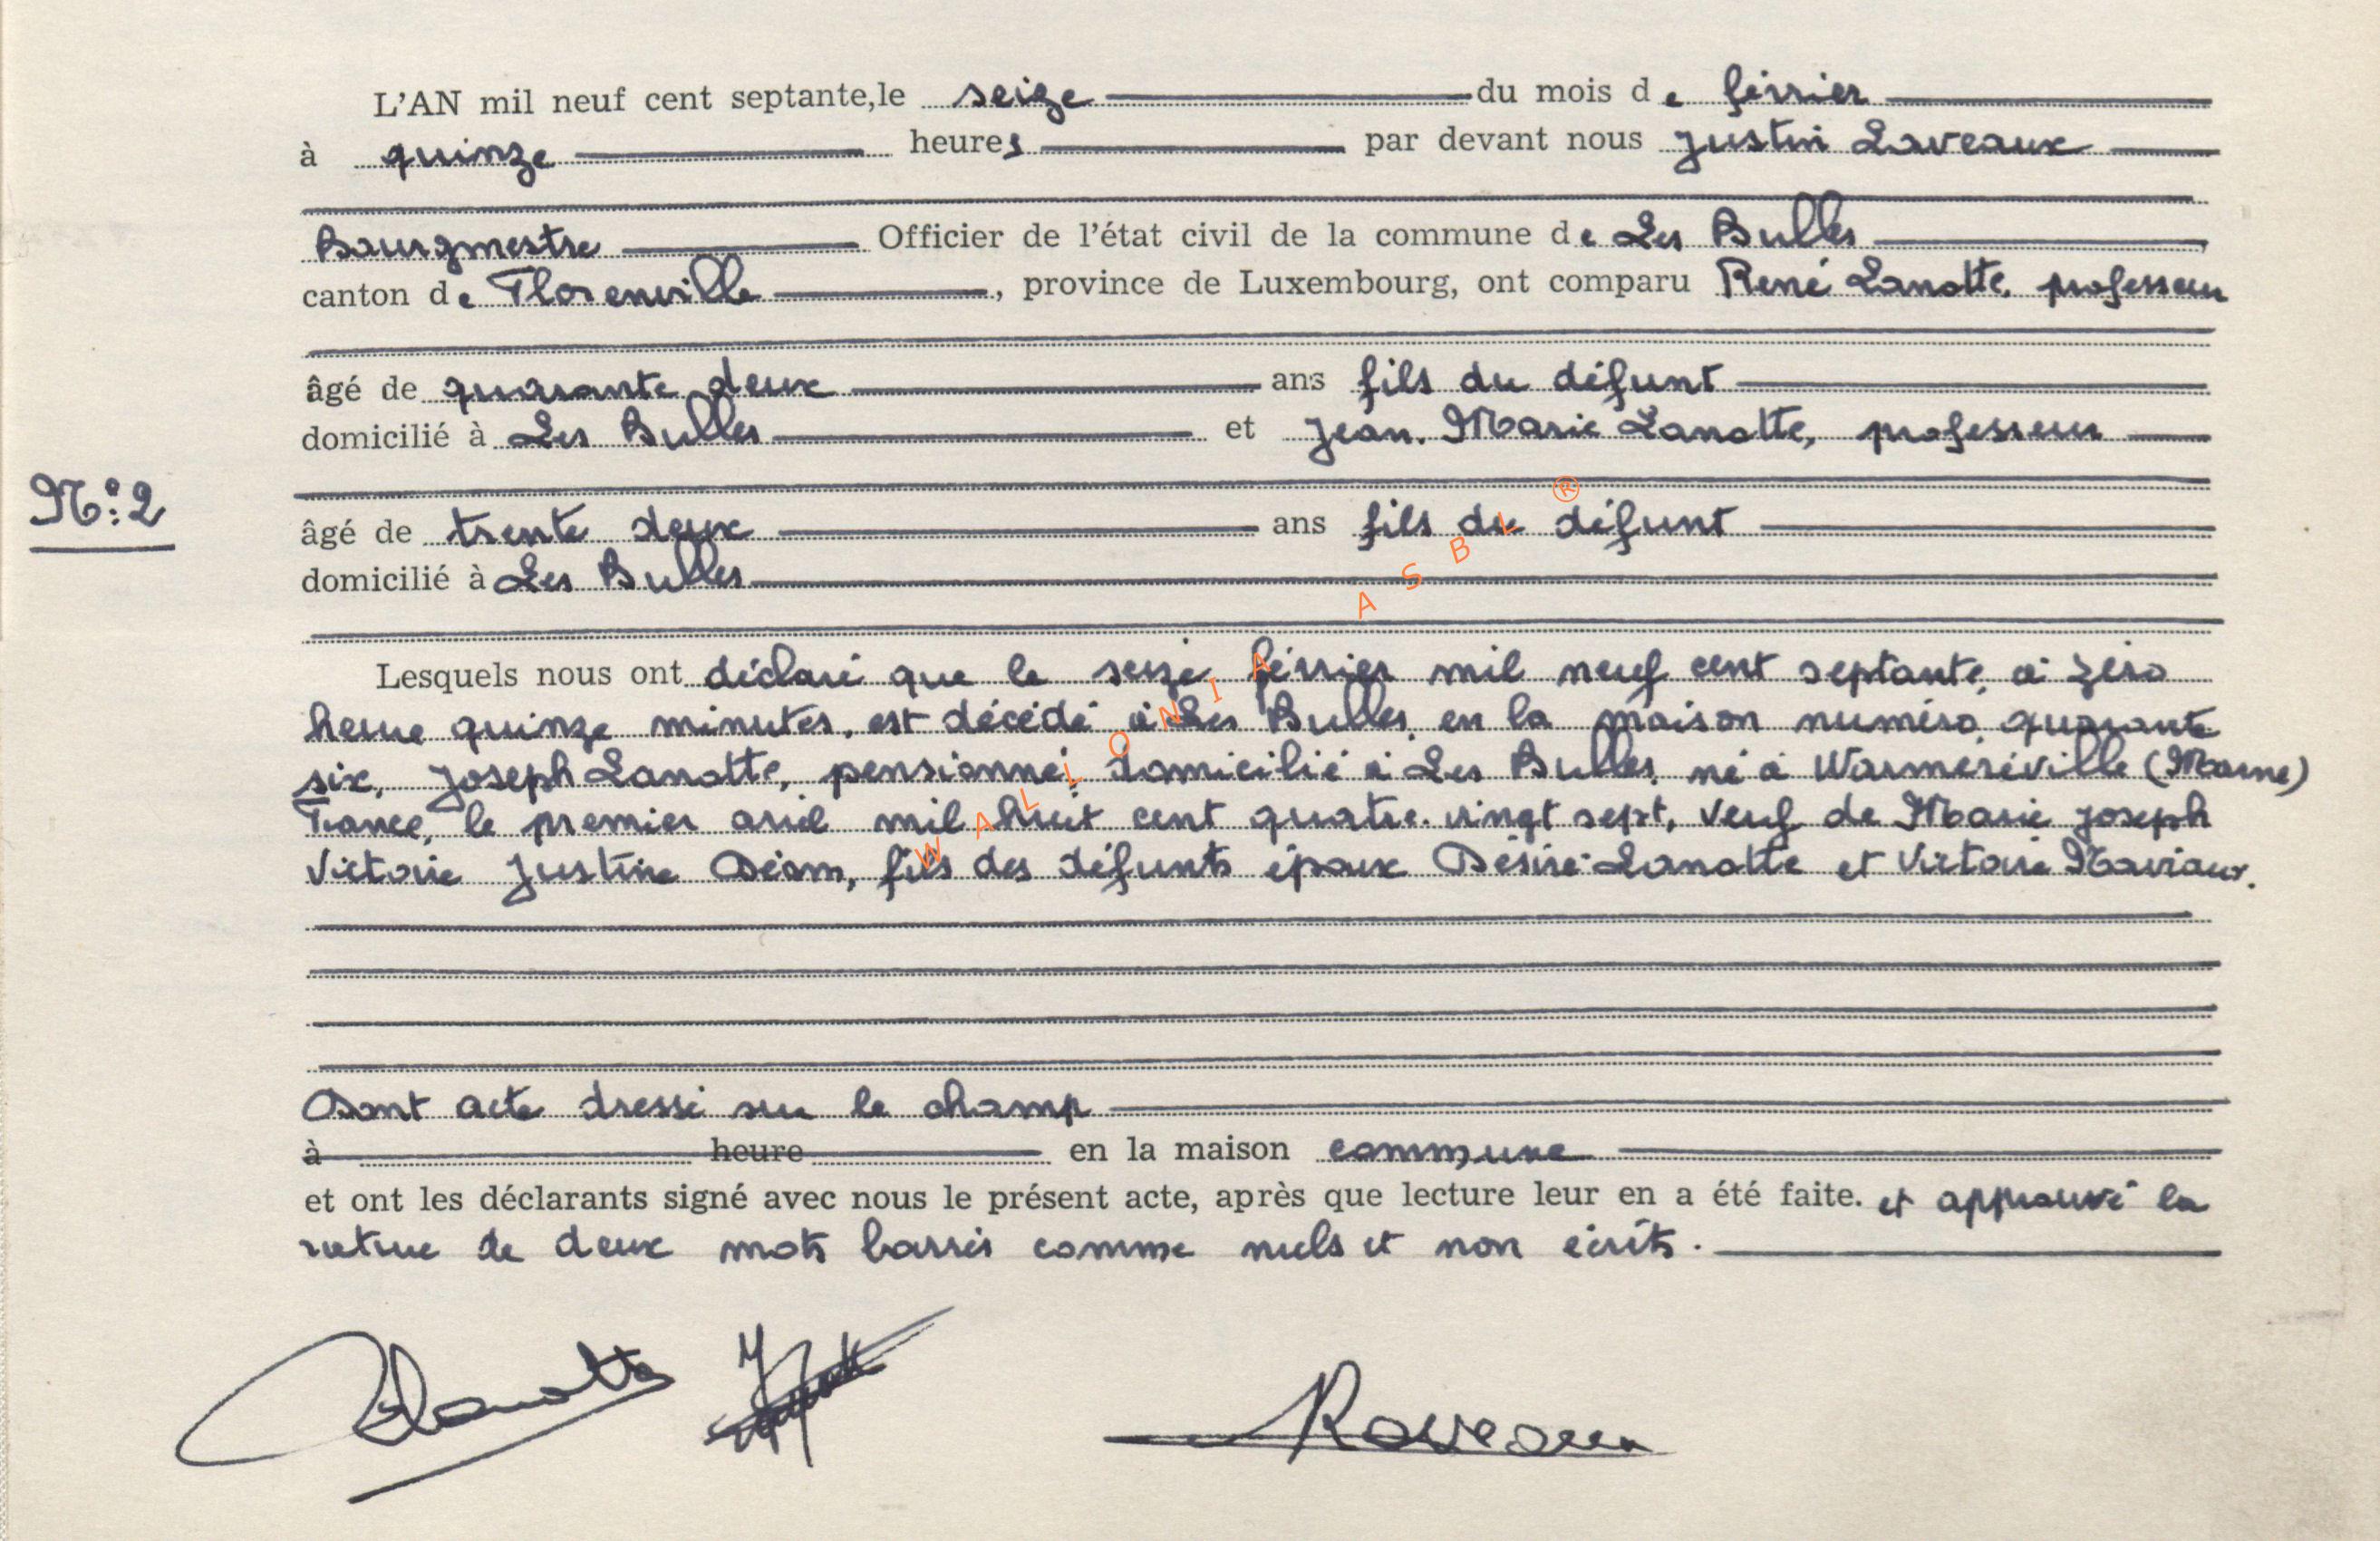 L'AN mil neuf cent septante, le seize du mois de février
à quinze heures par devant nous Justin Laveaux
Bourgmestre Officier de l'état civil de la commune de Les Bulles
canton de Florenville, province de Luxembourg, ont comparu René Lanotte, professeur
âgé de quarante deux ans fils du défunt
domicilié à Les Bulles et Jean-Marie Lanotte, professeur
N°: 2
âgé de trente deux ans fils du défunt
domicilié à Les Bulles
Lesquels nous ont déclaré que le seize février mil neuf cent septante, à zéro
heure quinze minutes, est décédé à Les Bulles, en la maison numéro quarante
six, Joseph Lanotte, pensionné, domicilié à Les Bulles, né à Warmeréville (Marne)
France, le premier avril mil huit cent quatre-vingt sept, veuf de Marie Joseph
Victorie Justine Déom, fils des défunts époux Désiré Lanotte et Victoire Naviaux.
Dont acte dressé sur le champ
à heure en la maison commune
et ont les déclarants signé avec nous le présent acte, après que lecture leur en a été faite. et approuvé la
rature de deux mots barrés comme nuls et non écrits.
Lanotte
WALLONIA ASBL ®